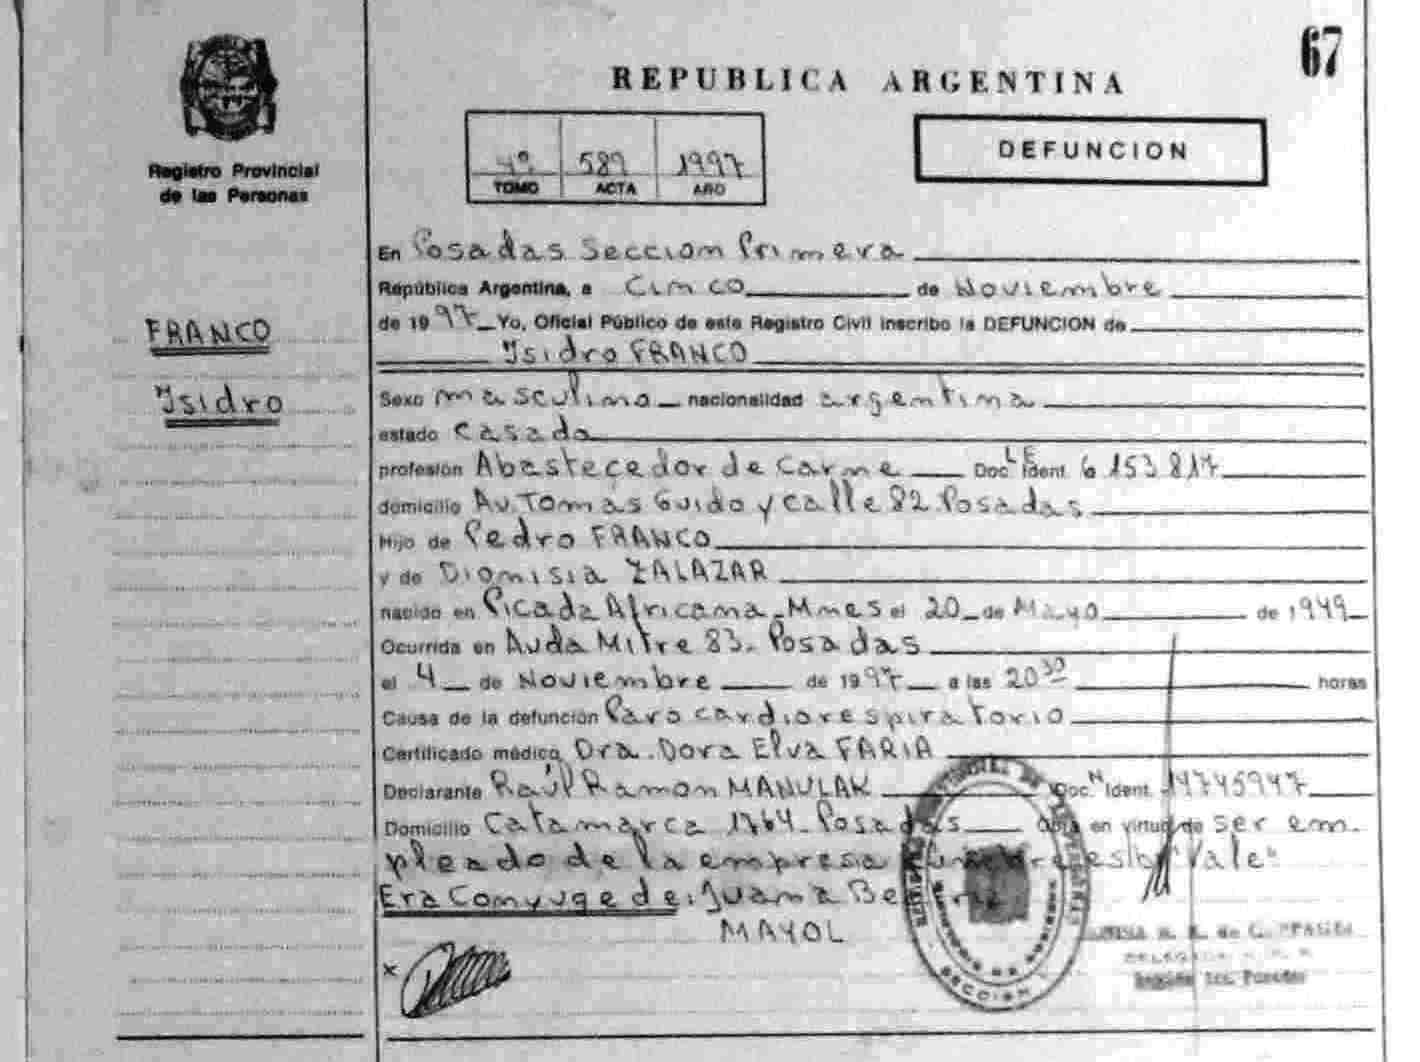 67
REPUBLICA ARGENTINA
Registro Provincial
de las Personas
4º 589 1997
TOMO ACTA AÑO
DEFUNCION
En Posadas Seccion Primera
República Argentina, a Cinco de Noviembre
de 1997 Yo, Oficial Público de este Registro Civil inscribo la DEFUNCION de
Isidro FRANCO
FRANCO
Isidro
Sexo masculino nacionalidad argentina
estado Casado
profesión Abastecedor de Carne Doc. LE Ident. 6 153 817
domicilio Av. Tomas Guido y calle 82 Posadas
Hijo de Pedro FRANCO
y de Dionisia ZALAZAR
nacido en Picada Africana - Mnes el 20 de Mayo de 1949
Ocurrida en Avda Mitre 83. Posadas
el 4 de Noviembre de 1997 a las 20 30 horas
Causa de la defunción Paro cardiorespiratorio
Certificado médico Dra. Dora Elva FARIA
Declarante Raúl Ramon MANULAK Doc. N Ident. 14745947
Domicilio Catamarca 1764 - Posadas Obra en virtud de ser em-
pleado de la empresa "Vale"
Era Conyuge de: Juana
MAYOL
x
SECCION